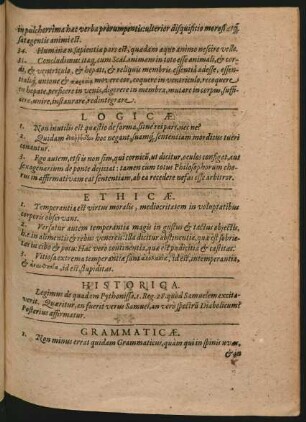 in pulcherrima hac verba prorumpenti: ulterior disquisitio morosæ &
satagentis animi est.
30. Humanæ sapientiæ pars est, quædam æquo animo nescire velle.
31. Concludimus itaq; cum Scal. animam in toto esse animali, & cor-
de, & ventriculo, & hepate, & reliquis membris essentia adesse, essen-
ne hepate, perficere in venis, digerere in membra, mutare in corpus, suffi-
cere, unire, instaurare, redintegrare.
LOGICÆ.
1. Non inutilis est quæstio de forma, sitne rei pars, nec ne?
2. Quidam hoc negant, suamq; sententiam mordicus tueri
conantur.
3. Ego autem, etsi is non sim, qui cornicũ, ut dicitur, oculos configat, aut
sexagenarium de ponte dejiciat: tamen cum totus Philosophorum cho-
rus in affirmativam eat sententiam, ab ea recedere nefas esse arbitror.
ETHICÆ.
1. Temperantia est virtus moralis, mediocritatem in voluptatibus
corporis observans.
2. Versatur autem temperantia magis in gustus & tactus objectis.
hæc in alimentis & rebus venereis: illa dicitur abstinentia, quæ est sobrie-
tas in cibo & potu: Hæc vero continentia, quæ est pudicitia & castitas.
3. Vitiosa extrema temperantiæ sunt id est, intemperantia,
& id est, stupiditas.
HISTORICA.
Legimus de quadam Pythonissa, 1. Reg. 28. quòd Samuelem excita-
verit. Quæritur, an fuerit verus Samuel, an verò spectrũ Diabolicum?
Posterius affirmatur.
GRAMMATICÆ.
1. Non minus errat quidam Grammaticus, quàm qui in spinis uvas,